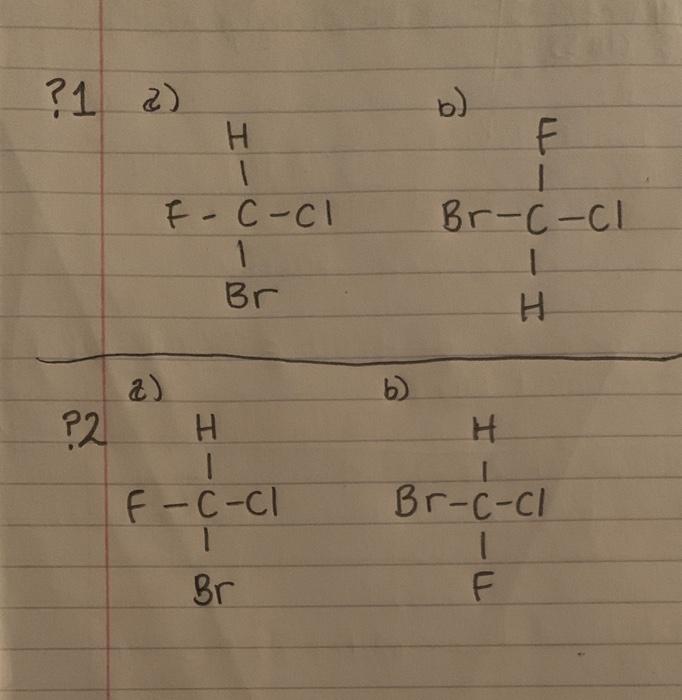 ?1 a) b)
H F
F - C - Cl Br - C - Cl
Br H
a) b)
?2 H H
F - C - Cl Br - C - Cl
Br F